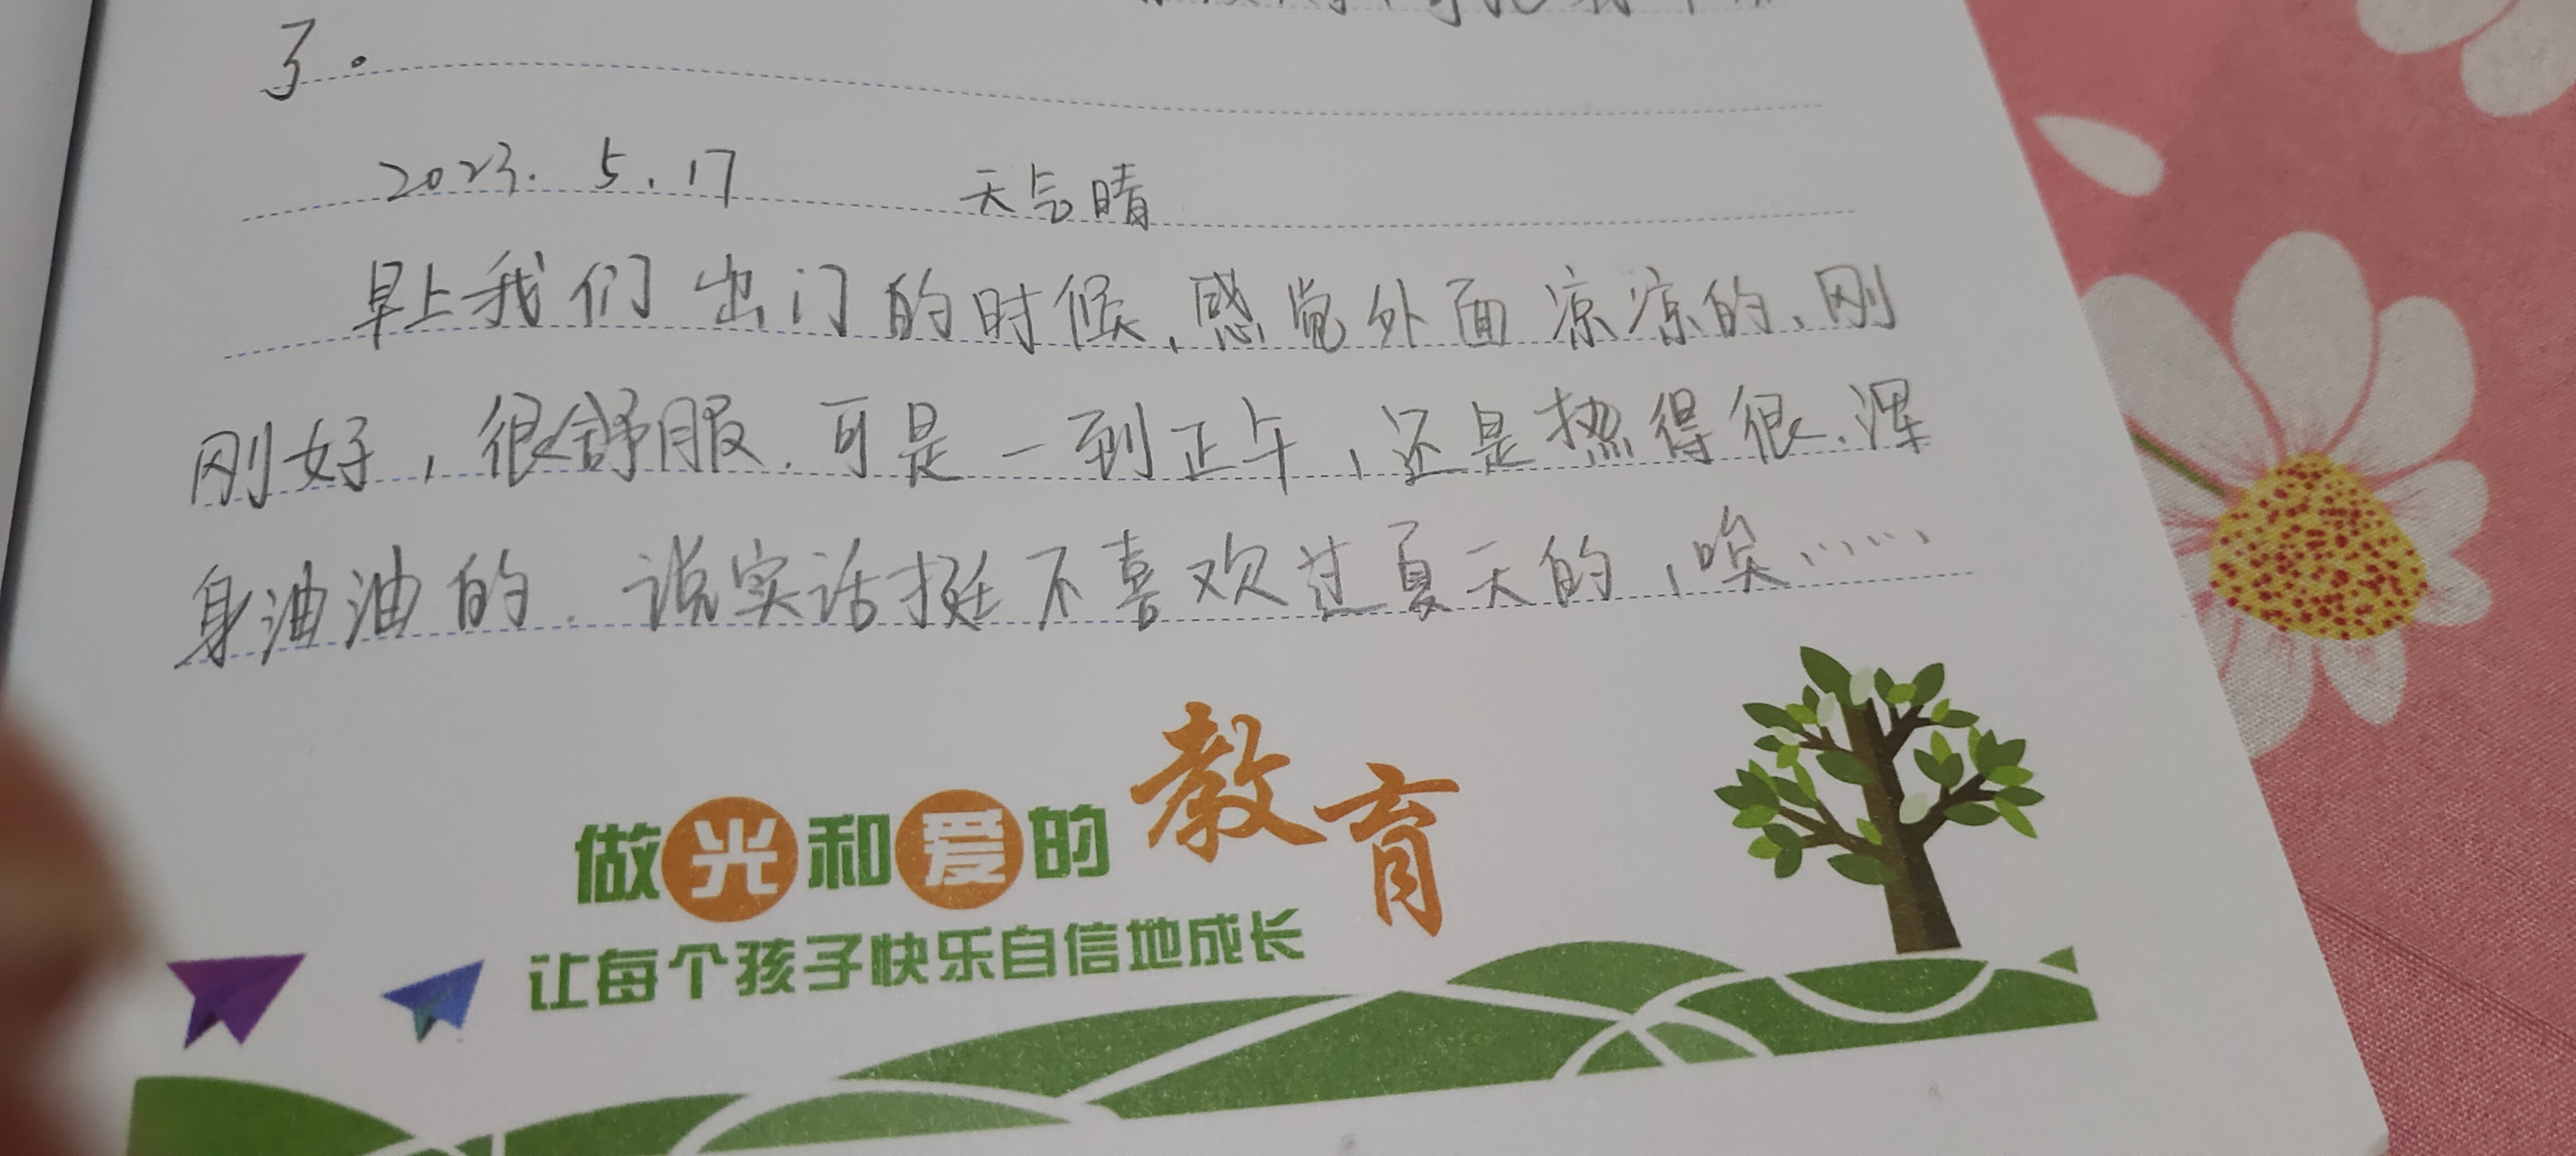 了.
2023. 5. 17 天气晴
早上我们出门的时候,感觉外面凉凉的、刚
刚好,很舒服.可是一到正午,还是热得很.浑
身油油的.说实话挺不喜欢过夏天的,唉……
做光和爱的教育
让每个孩子快乐自信地成长